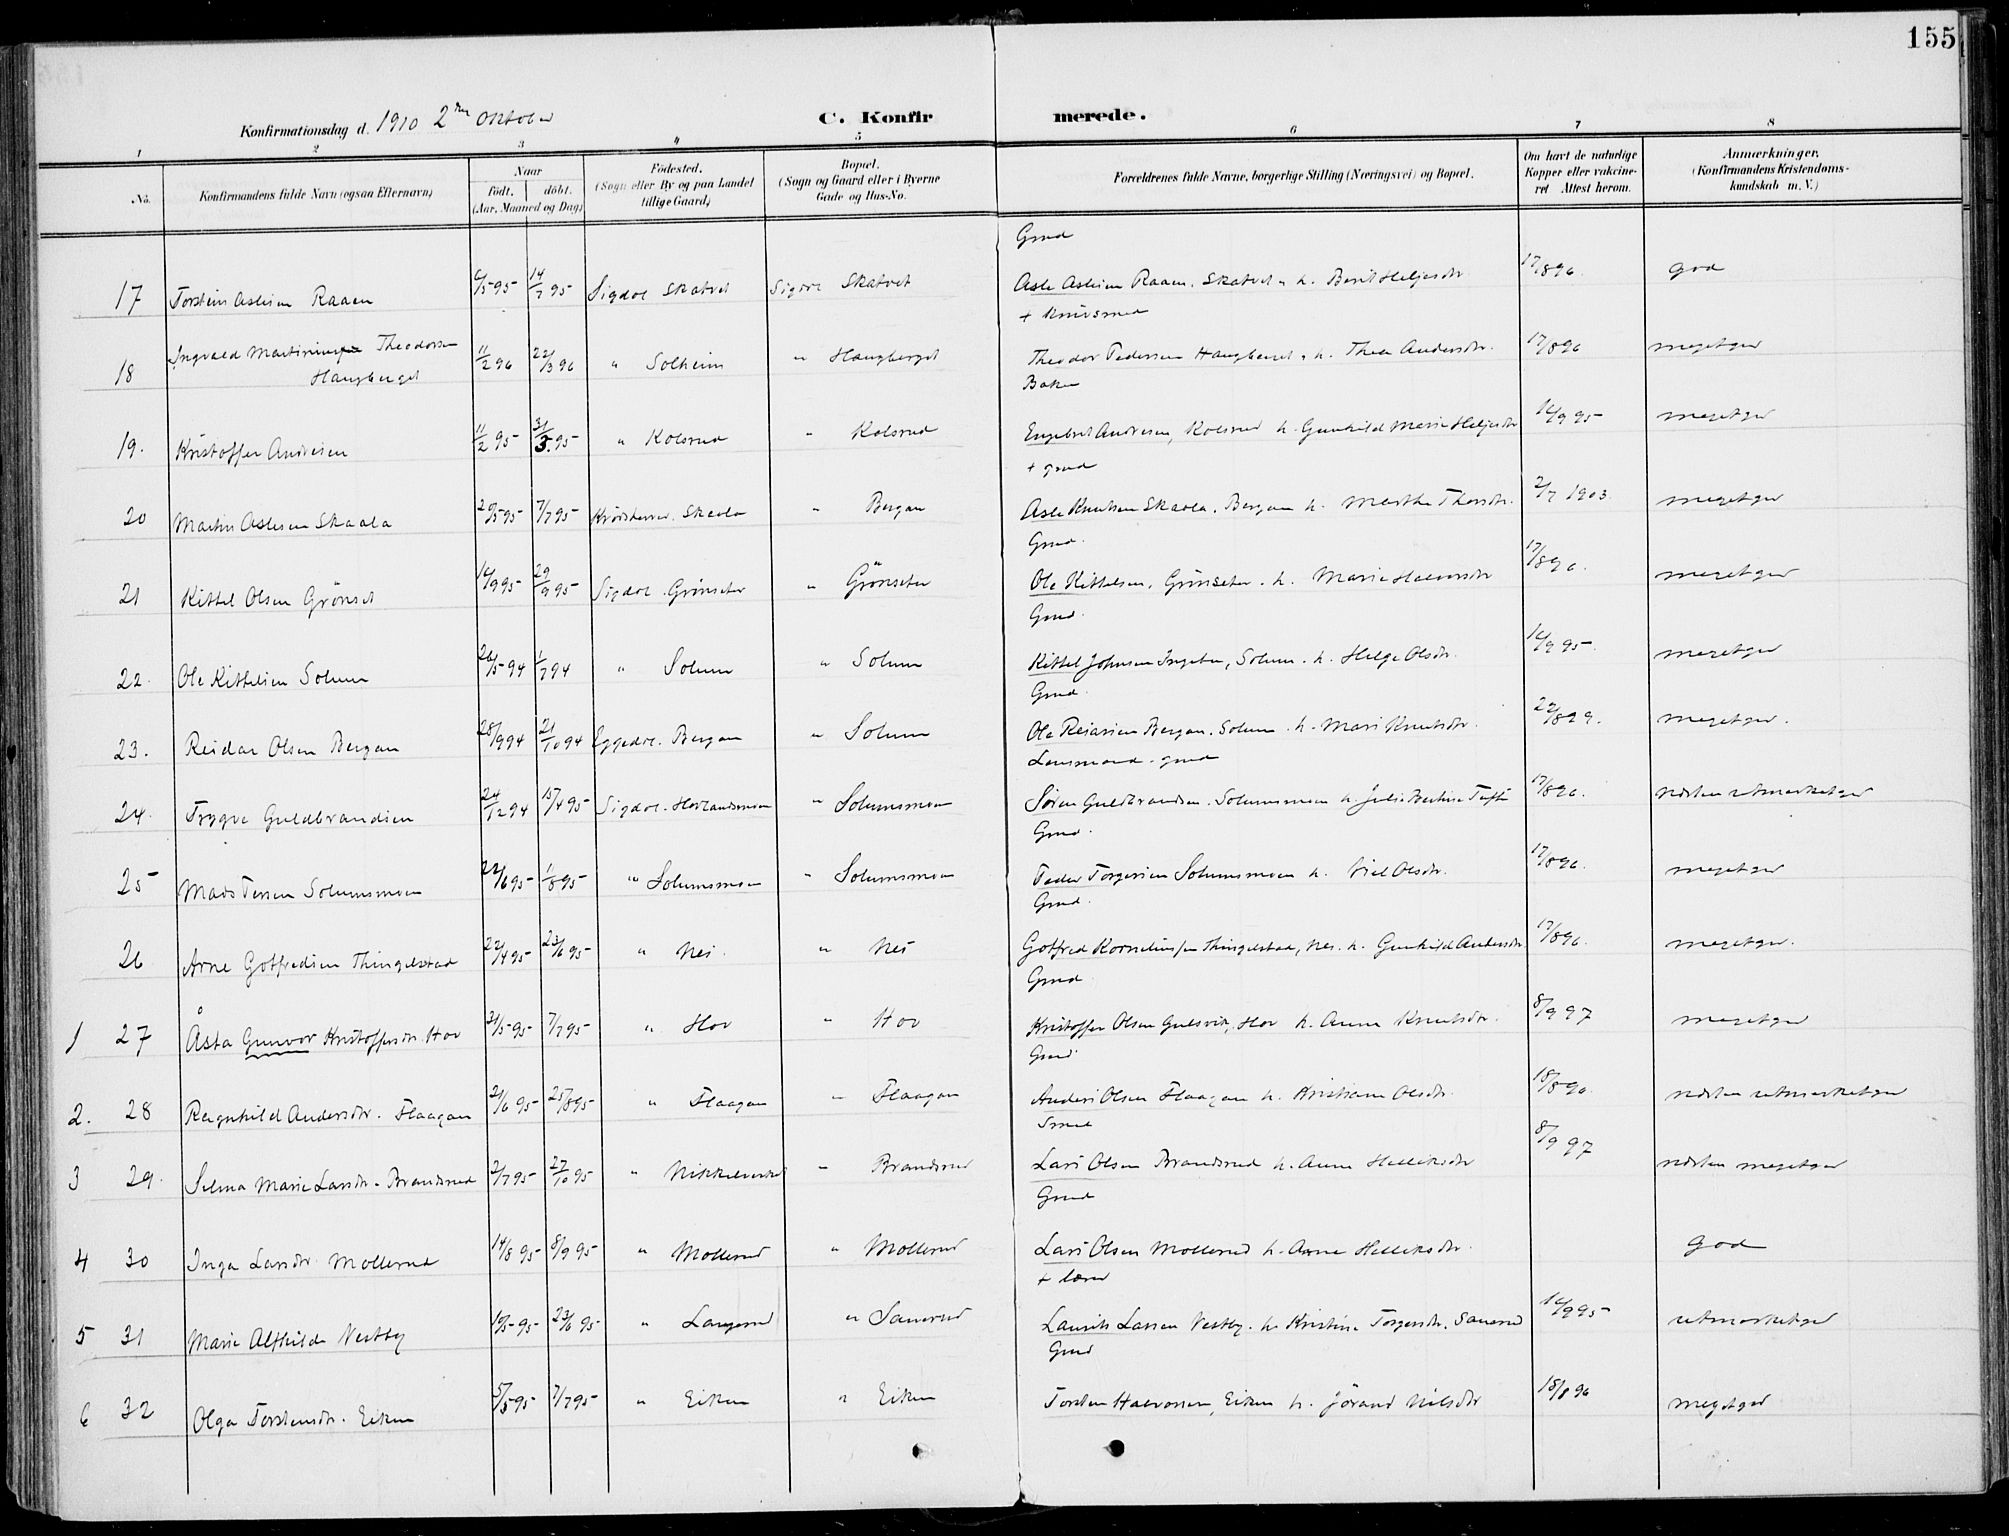 155
Konfirmationsdag d. 1910 2den Oktober
C. Konfirmerede.
1 2 3 4 5 6 7 8
No.
Konfirmandens fulde Navn (ogsaa Efternavn)
Naar
født. døbt.
(Aar, Maaned og Dag)
Fødested.
(Sogn eller By og paa Landet
tillige Gaard)
Bopæl.
(Sogn og Gaard eller i Byerne
Gade og Hus-No.
Forældrenes fulde Navne, borgerlige Stilling (Næringsvei) og Bopæl.
Om havt de naturlige
Kopper eller vakcine-
ret Attest herom.
Anmærkninger.
(Konfirmandens Kristendoms-
kundskab m. V.)
Gmd
17 Torstein Aslesen Raaen 6/5 95 14/7 95 Sigdal Skatvet Sigdal Skatvet Asle Aslesen Raaen, Skatvet o. h. Berit Heljesdtr 17/8 96. god
+ Husmd
18 Ingvald Martinius Theodorsen Haugberget 11/2 96 22/3 96 " Solheim " Haugberget Theodor Pedersen Haugberget o. h. Thea Andersdtr. 17/8 96 megetgod
Baker
19. Kristoffer Andresen 11/2 95 31/3 95 " Kolsrud " Kolsrud Engebret Andresen, Kolsrud h. Gunhild Marie Heljesdtr 16/9 95 megetgod
+ gmd
20 Martin Aslesen Skaala 20/5 95 7/7 95 Krødsherred. Skaala " Bergan Asle Knutsen Skaala, Bergan h. Marthe Thorsdtr. 2/7 1903. megetgod
Gmd.
21 Kittel Olsen Grönset 16/9 95 29/9 95 Sigdal Grönseter " Grönseter Ole Kittelsen, Grönseter. h. Marie Halvorsdtr 17/8 96. megetgod
Gmd.
22. Ole Kittelsen Solum 26/5 94 1/7 94 " Solum " Solum Kittel Johnsen Ingeber, Solum. h. Helge Olsdtr. 16/9 95 megetgod
Gmd.
23. Reidar Olsen Bergan 28/9 94 21/10 94 Eggedal. Bergan " Solum Ole Reiarsen Bergan. Solum h. Mari Knutsdtr. 22/8 99. megetgod.
Lensmand. gmd
24. Trygve Guldbrandsen 24/12 94 15/4 95 Sigdal. Hovlandsmoen " Solumsmoen Søren Guldbrandsen. Solumsmoen h. Julie Bertine Tuft 17/8 96. næsten utmerketgod
Gmd.
25 Mads Persen Solumsmoen 22/6 95 1/8 95 " Solumsmoen " Solumsmoen Peder Torgersen Solumsmoen h. Sidsel Olsdtr. 17/8 96. megetgod
Gmd.
26 Arne Gotfredsen Thingelstad 22/4 95 23/6 95 " Nes. " Nes Gotfred Korneliussen Thingelstad, Nes. h. Gunhild Andersdtr 17/8 96. megetgod.
Gmd
1 27 Åsta Gunvor Kristoffersdtr. Hov 31/5 95 7/7 95 " Hov " Hov Kristoffer Olsen Gulsvik, Hov h. Anne Knutsdtr. 8/9 97 megetgod
Gmd.
2. 28 Ragnhild Andersdtr. Flaagan 21/6 95 25/8 95 " Flaagan " Flaagan Anders Olsen Flaagan h. Kristiane Olsdtr. 18/8 96. næsten utmerketgod
Smed
3 29. Selma Marie Larsdtr. Brandsrud 2/7 95 27/10 95 " Nikkelverket " Brandsrud Lars Olsen Brandsrud h. Anne Helleksdtr 8/9 97 næsten megetgod
Gmd
4 30 Inga Larsdtr. Mollerud 14/8 95 8/9 95 " Mollerud " Mollerud Lars Olsen Mollerud h. Anne Helleksdtr. god
+ lærer
5 31 Marie Alfhilde Vestby 10/5 95 23/6 95 " Langerud " Sanerud Laurits Larsen Vestby. h. Kristine Torgersdtr. Sanerud 16/9 95 utmerketgod
Gmd
6 32 Olga Torstensdtr. Eiken 5/5 95 7/7 95 " Eiken " Eiken Torsten Halvorsen, Eiken h. Jörand Nilsdtr 18/8 96 megetgod